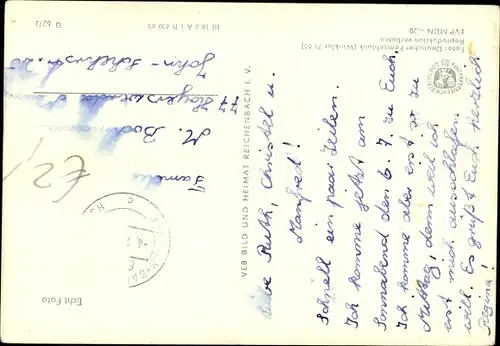 Liebe Ruth, Christel u.
Manfred!
Schnell ein paar Zeilen.
Ich komme jetzt am
Sonnabend den 6. 7. zu Euch.
Ich komme aber erst so zu
Mittag, denn weil ich
erst mich ausschlafen
will. Es grüßt Euch herzlich
Regina!
Familie
M.
77 Hoyerswerda
John-
€2,
Foto: Deutscher Fernsehfunk (Winkler 7) 65)
Reproduktion verboten
EVP MDN -,20
VEB BILD UND HEIMAT REICHENBACH I. V.
III 18-8 A 1 B 439/65
G 62/3
Echt Foto